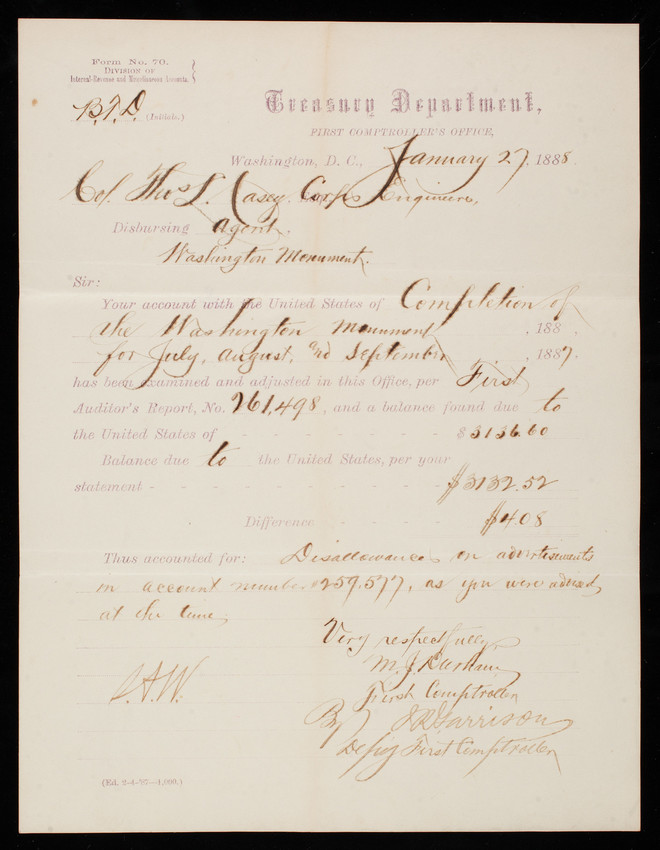 Form No. 70.
Division of
Internal-Revenue and Miscellaneous Accounts.
B.F.D. (Initials.)
Treasury Department,
FIRST COMPTROLLER'S OFFICE,
Washington, D. C., January 27, 1888.
Col. Thos L. Casey, Corps Engineers,
Disbursing Agent.
Washington Monument.
Sir:
Your account with the United States of Completion of
the Washington Monument , 188 ,
for July, August, and September , 1887.
has been examined and adjusted in this Office, per First
Auditor's Report, No. 261,498, and a balance found due to
the United States of - - - - - - $3136.60
Balance due to the United States, per your
statement - - - - - - - - $3132.52
Difference - - - - - $4.08
Thus accounted for: Disallowances on advertisements
in account number 259.577, as you were advised
at the time,
Very respectfully,
M. J. Durham
First Comptroller
S.A.W.
By J R Garrison
Depy First Comptroller